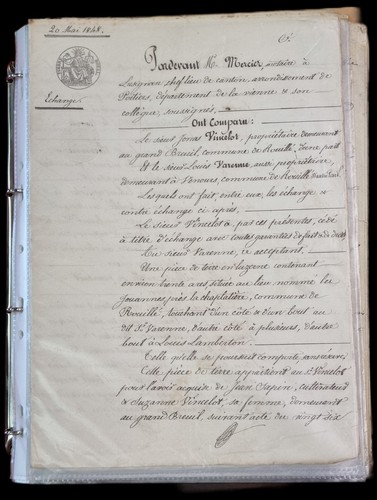 20 Mai 1848.
Échange
Pardevant Me. Mercier, notaire à
Lusignan chef lieu de canton, arrondissement de
Poitiers, département de la vienne et son
collègue, soussignés,
Ont Comparu:
Le sieur Jonas Vincelot, propriétaire demeurant
au grand Breuil, commune de Rouillé, d'une part
Et le sieur Louis Varenne, aussi propriétaire,
demeurant à Venours, commune de Rouillé
Lesquels ont fait, entre eux, les échange et
contre échange ci après,
Le Sieur Vincelot a par ces présentes, cédé
à titre d'échange avec toutes garanties de fait & de droit
Au Sieur Varenne, ce acceptant.
Une pièce de terre en luzerne contenant
environ trente ares située au lieu nommé les
Jouannes près la chaplatière, commune de
Rouillé, touchant d'un côté & d'un bout au
dit Sr. Varenne, d'autre côté à plusieurs, d'autre
bout à Louis Lamberton.
Telle qu'elle se poursuit comporte, sans réserve;
Cette pièce de terre appartient au Sr. Vincelot
pour l'avoir acquise de Jean Papin, cultivateur
& Suzanne Vincelot, sa femme, demeurant
au grand Breuil, suivant acte du vingt six